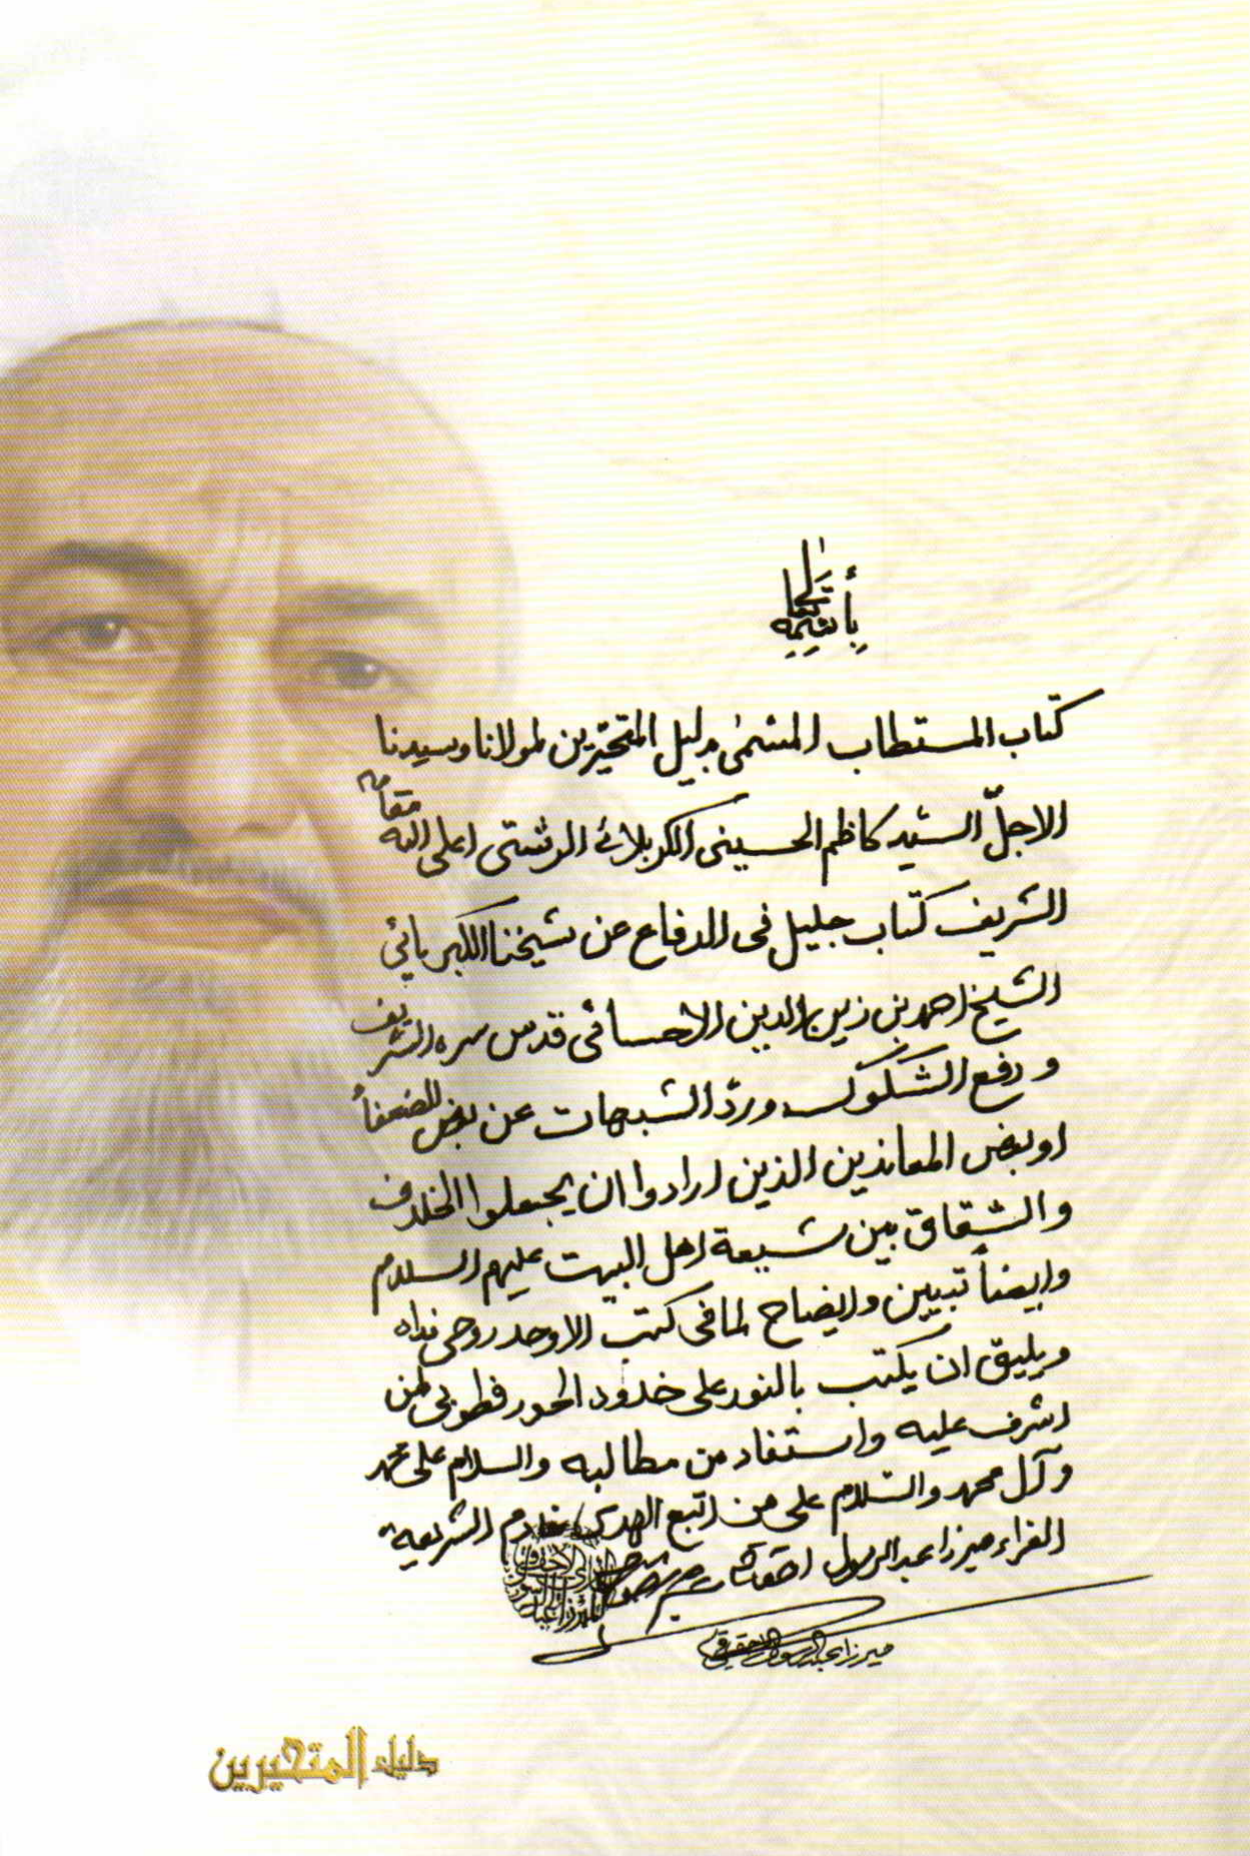 بأسمه تعالى
كتاب المستطاب المسمّى بدليل المتحيّرين لمولانا وسيدنا
الاجلّ السيد كاظم الحسينى الكربلائى الرشتى اعلى الله مقامه
الشريف كتاب جليل فى الدفاع عن شيخنا الكبريائي
الشيخ احمد بن زين الدين الاحسائى قدس سره الشريف
ودفع الشكوك وردّ الشبهات عن بعض الضعفأ
او بعض المعاندين الذين ارادوا ان يجعلوا الخلاف
والشقاق بين شيعة اهل البيت عليهم السلام
وايضاً تبيين وايضاح لما فى كتب الاوحد روحى فداه
ويليق ان يكتب بالنور على خدود الحور فطوبى لمن
اشرف عليه واستفاد من مطالبه والسلام على محمد
وآل محمد والسّلام على من اتبع الهدى خادم الشريعة
الغراء ميرزا عبدالرسول احقاقى
ميرزا عبدالرسول الاحقاقي
دليل المتحيرين